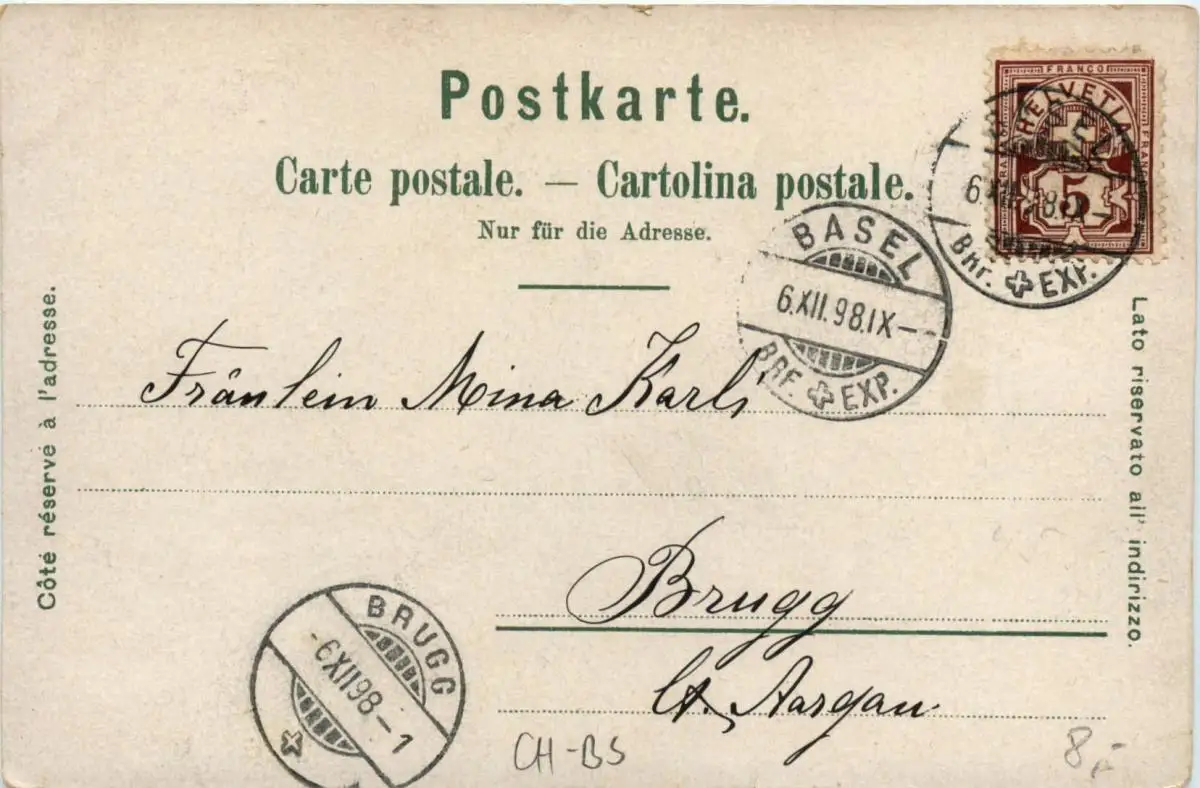 Postkarte.
Carte postale. — Cartolina postale.
Nur für die Adresse.
FRANCO
HELVETIA
5
6.XII.98.IX–
Bhr. EXP.
BASEL
6.XII.98.IX–
BRF. EXP.
Côté réservé à l'adresse.
Lato riservato all' indirizzo.
Fräulein Mina Karli
Brugg
Ct. Aargau.
BRUGG
-6XII98-1
CH-BS
8.-